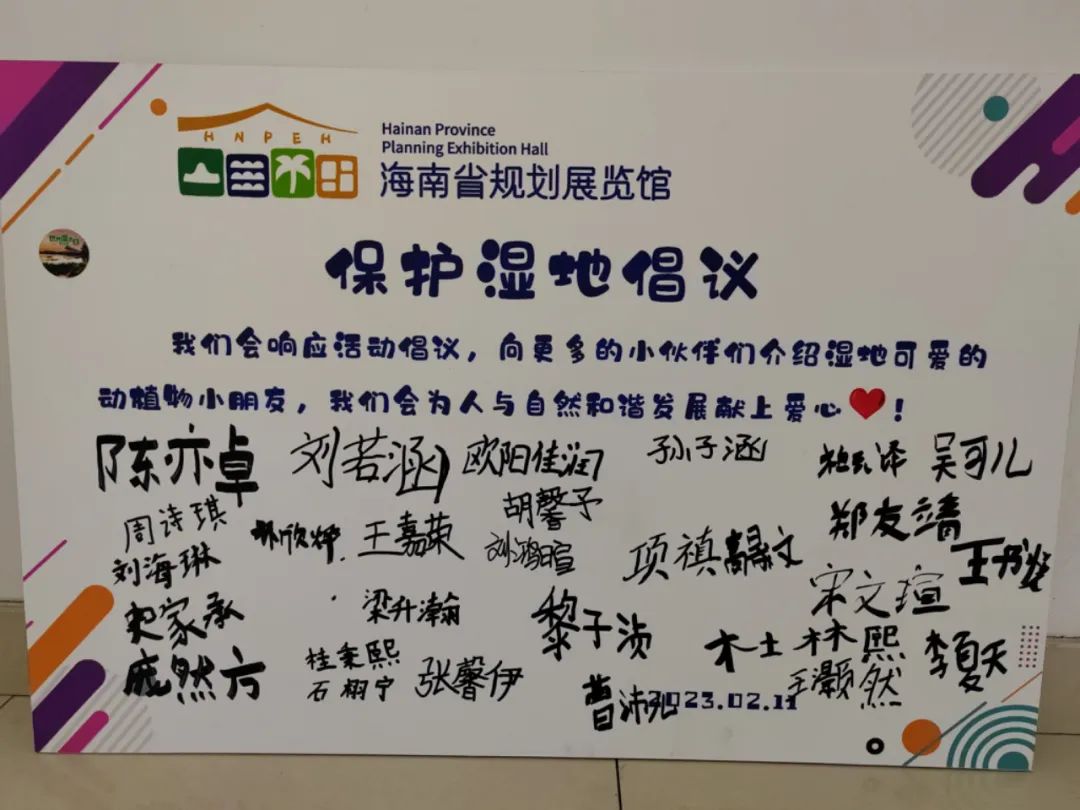 HNPEH
Hainan Province
Planning Exhibition Hall
海南省规划展览馆
保护湿地倡议
我们会响应活动倡议，向更多的小伙伴们介绍湿地可爱的
动植物小朋友，我们会为人与自然和谐发展献上爱心❤！
陈亦卓 刘若涵 欧阳佳润 孙子涵 吴可儿
周诗琪 王嘉荣 胡馨予 郑友靖
刘海琳 刘鸿暄 项禛 王
史家承 梁升瀚 黎子浈 宋文瑄
庞然方 桂秉熙 张馨伊 木土 林熙 李夏天
石栩宁 曹沛 王灏然
2023.02.11